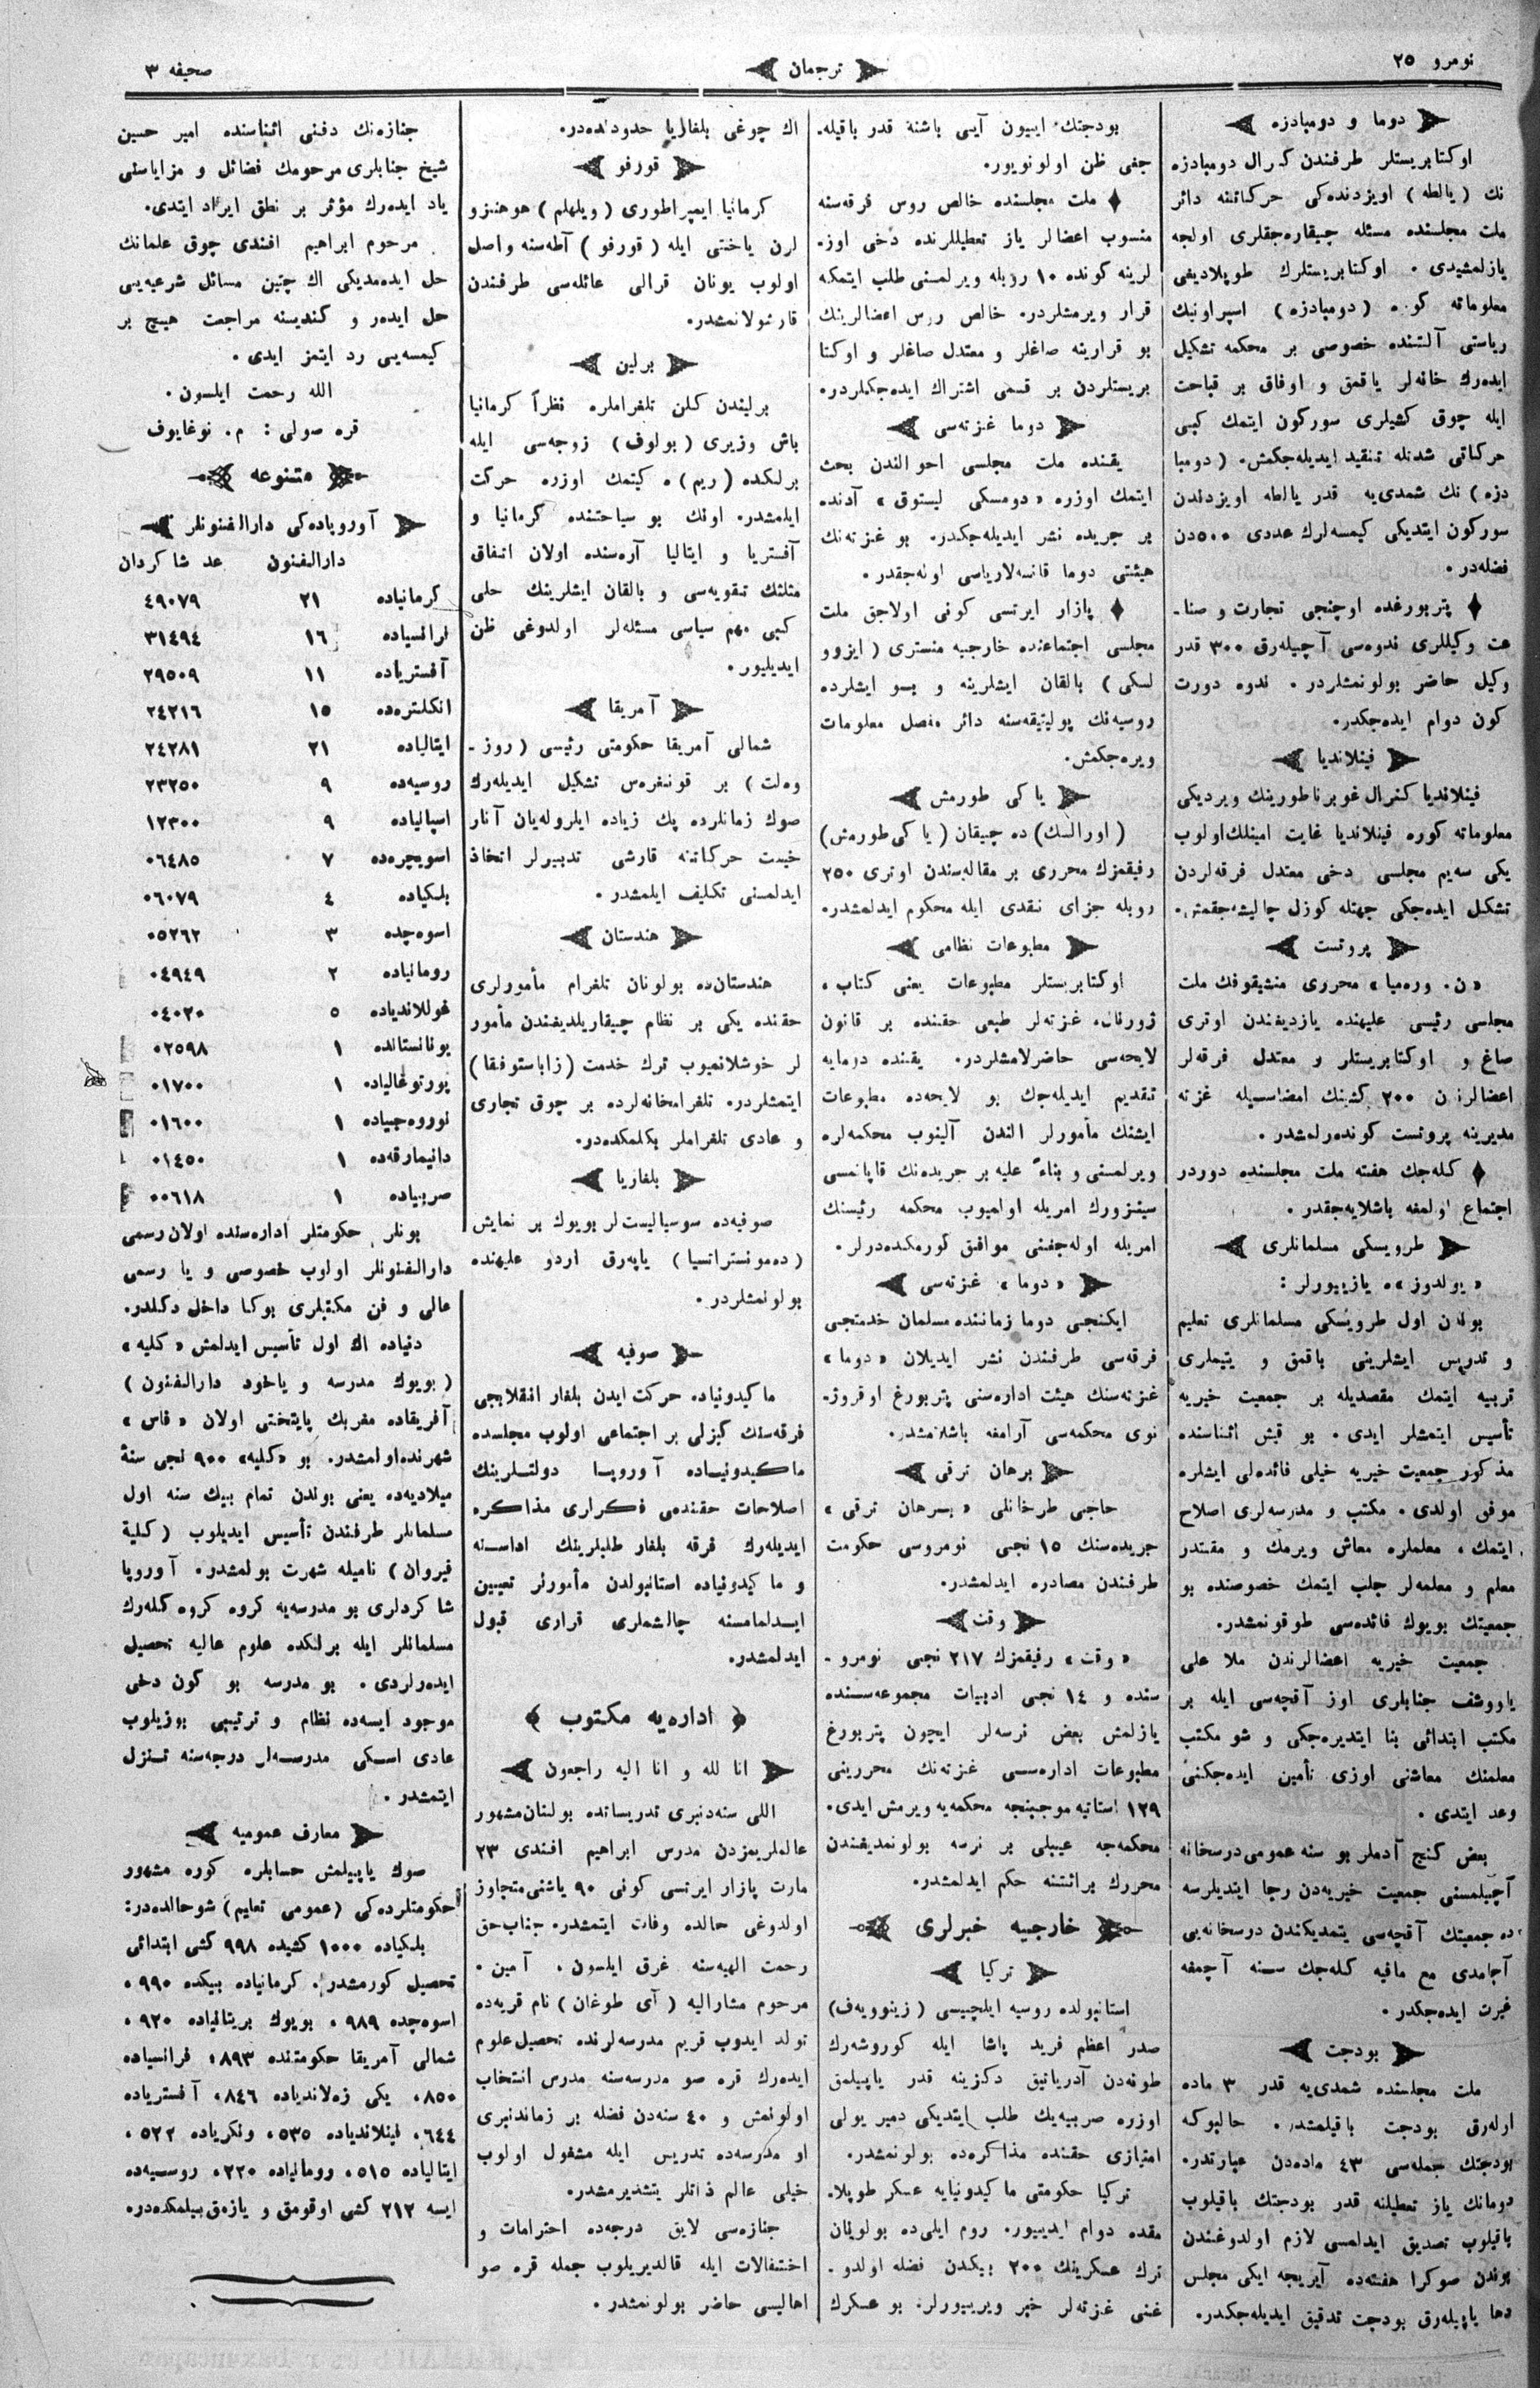 نومرو ٢٥
ترجمان
صحيفه ٣
دوما و دومبادزه
اوكتابريستلر طرفندن كنرال دومبادزه
نك ( يالطه ) اويزدنده‌كى حركاتنه دائر
ملت مجلسنده مسئله چيقاره‌جقلرى اولجه
يازلمشيدى . اوكتابريستلرك طوپلاديغى
معلوماته كوره ( دومبادزه ) اسپراونيك
رياستى آلتنده خصوصى بر محكمه تشكيل
ايده‌رك خانه‌لر ياقمق و اوفاق بر قباحت
ايله چوق كشيلرى سوركون ايتمك كبى
حركاتى شدتله تنقيد ايديله‌جكمش. ( دومبا
دزه ) نك شمدى‌يه قدر يالطه اويزدندن
سوركون ايتديكى كيمسه‌لرك عددى ٥٠٠دن
فضله‌در.
پتربورغده اوچنجى تجارت و صنا-
عت وكيللرى ندوه‌سى آچيله‌رق ٣٠٠ قدر
وكيل حاضر بولونمشلردر . ندوه دورت
كون دوام ايده‌جكدر.
فينلانديا
فينلانديا كنرال غوبرناطورينك ويرديكى
معلوماته كوره فينلانديا غايت امينلك اولوب
يكى سه‌يم مجلسى دخى معتدل فرقه‌لردن
تشكل ايده‌جكى جهتله كوزل چاليشه‌جقمش.
پروتست
«ن. وره‌ميا» محررى منشيقوفك ملت
مجلسى رئيسى عليهنده يازديغندن اوترى
صاغ و اوكتابريستلر و معتدل فرقه‌لر
اعضالرندن ٢٠٠ كشينك امضاسيله غزته
مديرينه پروتست كوندرلمشدر .
كله‌جك هفته ملت مجلسنده دوردر
اجتماع اولمغه باشلايه‌جقدر .
طرويسكى مسلمانلرى
«يولدوز»ه يازييورلر :
بوندن اول طرويسكى مسلمانلرى تعليم
و تدريس ايشلرينى باقمق و يتيملرى
تربيه ايتمك مقصديله بر جمعيت خيريه
تأسيس ايتمشلر ايدى . بو قيش اثناسنده
مذكور جمعيت خيريه خيلى فائده‌لى ايشلره
موفق اولدى . مكتب و مدرسه‌لرى اصلاح
ايتمك ، معلملره معاش ويرمك و مقتدر
معلم و معلمه‌لر جلب ايتمك خصوصنده بو
جمعيتك بويوك فائده‌سى طوقونمشدر.
جمعيت خيريه اعضالرندن ملا على
ياووشف جنابلرى اوز آقچه‌سى ايله بر
مكتب ابتدائى بنا ايتديره‌جكى و شو مكتب
معلمنك معاشنى اوزى تأمين ايده‌جكنى
وعد ايتدى .
بعض كنج آدملر بو سنه عمومى درسخانه
آچيلمسنى جمعيت خيريه‌دن رجا ايتديلرسه
ده جمعيتك آقچه‌سى يتمديكندن درسخانه‌يى
آچامدى مع مافيه كله‌جك سنه آچمغه
غيرت ايده‌جكدر .
بودجت
ملت مجلسنده شمدى‌يه قدر ٣ ماده
اوله‌رق بودجت باقيلمشدر . حالبوكه
بودجتك جمله‌سى ٤٣ ماده‌دن عبارتدر.
دومانك ياز تعطيلنه قدر بودجتك باقيلوب
باقيلوب تصديق ايدلمسى لازم اولدوغندن
بوندن صوكرا هفته‌ده آيريجه ايكى مجلس
دها ياپيله‌رق بودجت تدقيق ايديله‌جكدر.
بودجتك ايييون آيى باشنه قدر باقيله-
جغى ظن اولونويور.
ملت مجلسنده خالص روس فرقه‌سنه
منسوب اعضالر ياز تعطيللرنده دخى اوز-
لرينه كونده ١٠ روبله ويرلمسنى طلب ايتمكه
قرار ويرمشلردر. خالص روس اعضالرينك
بو قرارينه صاغلر و معتدل صاغلر و اوكتا
بريستلردن بر قسمى اشتراك ايده‌جكلردر.
دوما غزته‌سى
يقنده ملت مجلسى احوالندن بحث
ايتمك اوزره «دومسكى ليستوق» آدنده
بر جريده نشر ايديله‌جكدر. بو غزته‌نك
هيئتى دوما قانسه‌لارياسى اوله‌جقدر.
پازار ايرتسى كونى اولاجق ملت
مجلسى اجتماعنده خارجيه منسترى ( ايزوو
لسكى ) بالقان ايشلرينه و بو ايشلرده
روسيه‌نك پوليتيقه‌سنه دائر مفصل معلومات
ويره‌جكمش.
ياكى طورمش
( اورالسك ) ده چيقان ( ياكى طورمش )
رفيقمزك محررى بر مقاله‌سندن اوترى ٢٥٠
روبله جزاى نقدى ايله محكوم ايدلمشدر.
مطبوعات نظامى
اوكتابريستلر مطبوعات يعنى كتاب ،
ژورنال، غزته‌لر طبعى حقنده بر قانون
لايحه‌سى حاضرلامشلردر. يقنده دومايه
تقديم ايديله‌جك بو لايحه‌ده مطبوعات
ايشنك مأمورلر الندن آلينوب محكمه‌لره
ويرلمسنى و بناءً عليه بر جريده‌نك قاپانمسى
سينزورك امريله اولميوب محكمه رئيسنك
امريله اوله‌جغنى موافق كورمكده‌درلر.
«دوما» غزته‌سى
ايكنجى دوما زماننده مسلمان خدمتجى
فرقه‌سى طرفندن نشر ايديلان «دوما»
غزته‌سنك هيئت اداره‌سنى پتربورغ اوقروژ-
نوى محكمه‌سى آرامغه باشلامشدر.
برهان ترقى
حاجى طرخانلى «برهان ترقى»
جريده‌سنك ١٥ نجى نومروسى حكومت
طرفندن مصادره ايدلمشدر.
وقت
«وقت» رفيقمزك ٢١٧ نجى نومرو-
سنده و ١٤ نجى ادبيات مجموعه‌سنده
يازلمش بعض نرسه‌لر ايچون پتربورغ
مطبوعات اداره‌سى غزته‌نك محررينى
١٢٩ استاتيه موجبنجه محكمه‌يه ويرمش ايدى.
محكمه‌جه عيبلى بر نرسه بولونمديغندن
محررك برائتنه حكم ايدلمشدر.
خارجيه خبرلرى
تركيا
استانبولده روسيه ايلچيسى ( زينوويه‌ف )
صدر اعظم فريد پاشا ايله كوروشه‌رك
طونه‌دن آدرياتيق دكزينه قدر ياپيلمق
اوزره صربيه‌نك طلب ايتديكى دمير يولى
امتيازى حقنده مذاكره‌ده بولونمشدر.
تركيا حكومتى ماكيدونيايه عسكر طوپلا-
مقده دوام ايدييور. روم ايلى‌ده بولونان
ترك عسكرينك ٢٠٠ بيكدن فضله اولدو-
غنى غزته‌لر خبر ويرييورلر. بو عسكرك
اك چوغى بلغاريا حدودنده‌در.
قورفو
كرمانيا ايمپراطورى ( ويلهلم ) هوهنزو
لرن ياختى ايله ( قورفو ) آطه‌سنه واصل
اولوب يونان قرالى عائله‌سى طرفندن
قارشولانمشدر.
برلين
برليندن كلن تلغرامله‌ره نظراً كرمانيا
باش وزيرى ( بولوف ) زوجه‌سى ايله
برلكده ( ريم ) ه كيتمك اوزره حركت
ايلمشدر. اونك بو سياحتنده كرمانيا و
آفستريا و ايتاليا آره‌سنده اولان اتفاق
مثلثك تقويه‌سى و بالقان ايشلرينك حلى
كبى مهم سياسى مسئله‌لر اولدوغى ظن
ايديليور.
آمريقا
شمالى آمريقا حكومتى رئيسى ( روز-
وه‌لت ) بر قونغره‌س تشكيل ايديله‌رك
صوك زمانلرده پك زياده ايلروله‌يان آنار
خيست حركاتنه قارشى تدبيرلر اتخاذ
ايدلمسنى تكليف ايلمشدر.
هندستان
هندستان‌ده بولونان تلغرام مأمورلرى
حقنده يكى بر نظام چيقاريلديغندن مأمور
لر خوشلانميوب ترك خدمت ( زاباستوفقا )
ايتمشلردر. تلغرامخانه‌لرده بر چوق تجارى
و عادى تلغراملر بكلمكده‌در.
بلغاريا
صوفيه‌ده سوسياليست‌لر بويوك بر نمايش
( ده‌مونستراتسيا ) ياپه‌رق اردو عليهنده
بولونمشلردر.
صوفيه
ماكيدونياده حركت ايدن بلغار انقلابجى
فرقه‌سنك كيزلى بر اجتماعى اولوب مجلسده
ماكيدونياده آوروپا دولتلرينك
اصلاحات حقنده‌مى فكرلرى مذاكره
ايديله‌رك فرقه بلغار طلبلرينك اداسنه
و ماكيدونياده استانبولدن مأمورلر تعيين
ايدلمامسنه چالشملرى قرارى قبول
ايدلمشدر.
اداره‌يه مكتوب
انا لله و انا اليه راجعون
اللى سنه‌دنبرى تدريساتده بولنان مشهور
عالملريمزدن مدرس ابراهيم افندى ٢٣
مارت پازار ايرتسى كونى ٩٠ ياشنى متجاوز
اولدوغى حالده وفات ايتمشدر. جناب حق
رحمت الهيه‌سنه غرق ايلسون. آمين.
مرحوم مشاراليه ( آى طوغان ) نام قريه‌ده
تولد ايدوب قريم مدرسه‌لرنده تحصيل علوم
ايده‌رك قره صو مدرسه‌سنه مدرس انتخاب
اولونمش و ٤٠ سنه‌دن فضله بر زماندنبرى
او مدرسه‌ده تدريس ايله مشغول اولوب
خيلى عالم ذاتلر يتشديرمشدر.
جنازه‌سى لايق درجه‌ده احترامات و
اختفالات ايله قالديريلوب جمله قره صو
اهاليسى حاضر بولونمشدر.
جنازه‌نك دفنى اثناسنده امير حسين
شيخ جنابلرى مرحومك فضائل و مزاياسنى
ياد ايده‌رك مؤثر بر نطق ايراد ايتدى.
مرحوم ابراهيم افندى چوق علمانك
حل ايده‌مديكى اك چتين مسائل شرعيه‌يى
حل ايده‌ر و كنديسنه مراجعت هيچ بر
كيمسه‌يى رد ايتمز ايدى .
الله رحمت ايلسون.
قره صولى : م. نوغايوف
متنوعه
آوروپاده‌كى دارالفنونلر
دارالفنون عدد شاكردان
كرمانياده ٢١ ٤٩٠٧٩
فرانسياده ١٦ ٣١٤٩٤
آفسترياده ١١ ٢٩٥٠٩
انكلتره‌ده ١٥ ٢٤٢١٦
ايتالياده ٢١ ٢٤٢٨١
روسيه‌ده ٩ ٢٣٢٥٠
اسپانياده ٩ ١٢٣٠٠
اسويچره‌ده ٧ ٠٦٤٨٥
بلكياده ٤ ٠٦٠٧٩
اسوه‌چده ٣ ٠٥٢٦٢
رومانياده ٢ ٠٤٩٤٩
غوللاندياده ٥ ٠٤٠٢٠
يونانستانده ١ ٠٢٥٩٨
پورتوغالياده ١ ٠١٧٠٠
نورووه‌جياده ١ ٠١٦٠٠
دانيمارقه‌ده ١ ٠١٤٥٠
صربياده ١ ٠٠٦١٨
بونلر حكومتلر اداره‌سنده اولان رسمى
دارالفنونلر اولوب خصوصى و يا رسمى
عالى و فن مكتبلرى بوكا داخل دكلدر.
دنياده اك اول تأسيس ايدلمش «كليه»
( بويوك مدرسه و ياخود دارالفنون )
آفريقاده مغربك پايتختى اولان «فاس»
شهرنده اولمشدر. بو «كليه» ٩٠٠ نجى سنۀ
ميلاديه‌ده يعنى بوندن تمام بيك سنه اول
مسلمانلر طرفندن تأسيس ايديلوب ( كلية
قيروان ) ناميله شهرت بولمشدر. آوروپا
شاكردلرى بو مدرسه‌يه كروه كروه كله‌رك
مسلمانلر ايله برلكده علوم عاليه تحصيل
ايده‌رلردى . بو مدرسه بو كون دخى
موجود ايسه‌ده نظام و ترتيبى بوزيلوب
عادى اسكى مدرسه‌لر درجه‌سنه تنزل
ايتمشدر.
معارف عموميه
صوك ياپيلمش حسابلره كوره مشهور
حكومتلرده‌كى ( عمومى تعليم ) شو حالده‌در:
بلكياده ١٠٠٠ كشيده ٩٩٨ كشى ابتدائى
تحصيل كورمشدر. كرمانياده بيكده ٩٩٠ ،
اسوه‌چده ٩٨٩ ، بويوك بريتانياده ٩٢٠ ،
شمالى آمريقا حكومتنده ٨٩٣، فرانسياده
٨٥٠، يكى زه‌لاندياده ٨٤٦، آفسترياده
٦٤٤، فينلاندياده ٥٣٥، ونكرياده ٥٢٢ ،
ايتالياده ٥١٥، رومانياده ٢٢٠، روسيه‌ده
ايسه ٢١٢ كشى اوقومق و يازمق بيلمكده‌در.